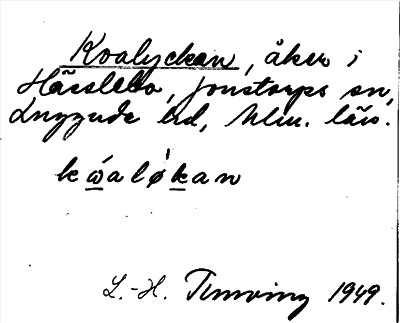 Kvalyckan, åker i
Hässlebo, Jonstorps sn,
Luggude hd, Mlm. län.
kωalø̀kan
L.-H. 1949.